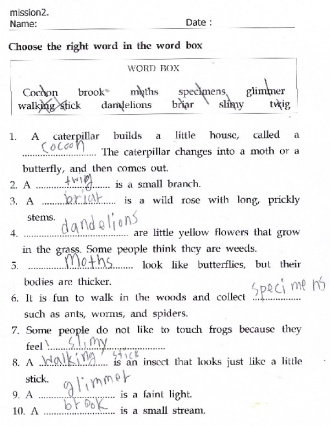 mission2.
Name: Date :
Choose the right word in the word box
WORD BOX
Cocoon brook moths specimens glimmer
walking stick dandelions briar slimy twig
1. A caterpillar builds a little house, called a
cocoon The caterpillar changes into a moth or a
butterfly, and then comes out.
2. A twig is a small branch.
3. A briar is a wild rose with long, prickly
stems.
4. dandelions are little yellow flowers that grow
in the grass. Some people think they are weeds.
5. Moths look like butterflies, but their
bodies are thicker.
6. It is fun to walk in the woods and collect specimens
such as ants, worms, and spiders.
7. Some people do not like to touch frogs because they
feel slimy
8. A walking stick is an insect that looks just like a little
stick.
9. glimmer is a faint light.
10. A brook is a small stream.